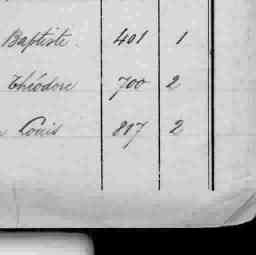 Baptiste. 401 1
Théodore 700 2
Louis 807 2